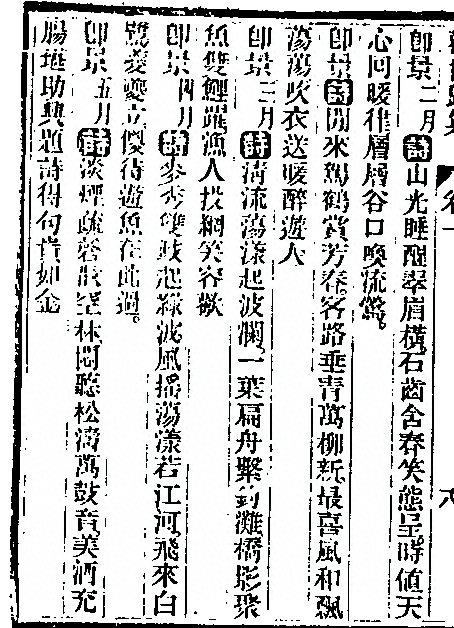 即景二月詩山光睡醒翠眉橫石齒含春笑態呈時値天
心回暖律層層谷口喚流鶯
即景詩閒來駕鶴賞芳春客路垂青萬柳新最喜風和飄
蕩蕩吹衣送暖醉遊人
即景三月詩清流蕩漾起波瀾一葉扁舟聚釣灘橋影聚
魚雙鯉躍漁人投網笑容歡
即景四月詩麥秀雙歧起綠波風搖蕩漾若江河飛來白
鷺雙雙立儍待遊魚在此過
即景五月詩淡煙疏磬散空林閒聽松濤萬鼓音美酒充
腸堪助興題詩得句貴如金
六